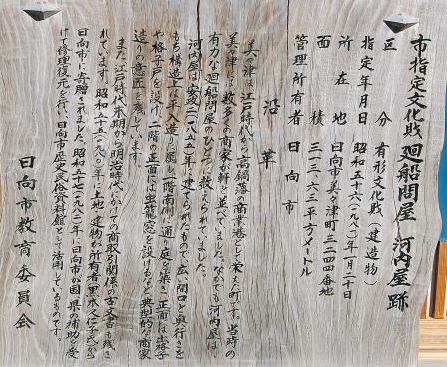 市指定文化財 廻船問屋 河内屋跡
区分 有形文化財（建造物）
指定年月日 昭和五十六（一九八一）年一月二十日
所在地 日向市美々津町三二四四番地
面積 三一三・六三平方メートル
管理所有者 日向市
沿革
美々津は、江戸時代から高鍋藩の商業港として栄えた町です。当時の
美々津には数多くの商家が軒を並べていました。なかでも河内屋は、
有力な廻船問屋のひとつに数えられていました。
河内屋は安政二（一八五五）年に建てられたもので、広い間口と奥行きを
もち構造上は平入造りに属し、一階南側に通り庭を築き、正面には出格子
や格子戸を設け、二階の正面には虫籠窓を設けるなど典型的な商家
造りの意匠を残しています。
また、江戸時代末期から明治時代にかけての商取引関係の古文書も残さ
れています。昭和五十五（一九八〇）年に土地・建物が所有者
日向市に寄贈されました。昭和五十七（一九八二）年に日向市が国・県の補助を受
けて修理復元を行い、日向市歴史民俗資料館として活用しているものです。
日向市教育委員会